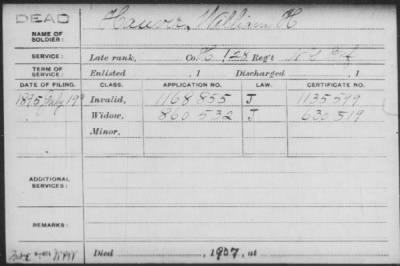 DEAD
NAME OF SOLDIER: William H
SERVICE: Late rank, Co. K 128 Reg't Inf
TERM OF SERVICE: Enlisted , 1 Discharged , 1
DATE OF FILING. CLASS. APPLICATION NO. LAW. CERTIFICATE NO.
1895 July 19 Invalid, 1168 855 J 1135 599
Widow, 860 532 J 630 519
Minor,
ADDITIONAL SERVICES:
REMARKS:
Died , 1907, at